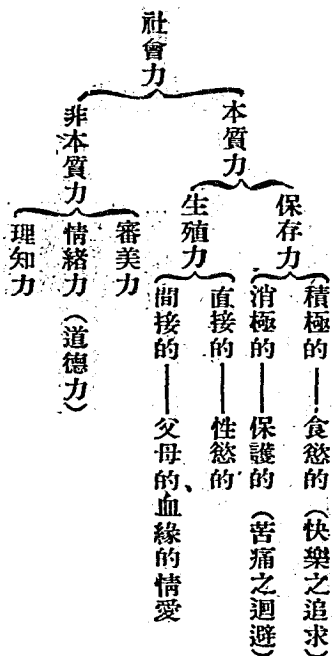 社會力
本質力
保存力
積極的——食慾的（快樂之追求）
消極的——保護的（苦痛之迴避）
生殖力
直接的——性慾的
間接的——父母的、血緣的情愛
非本質力
審美力
情緒力（道德力）
理知力